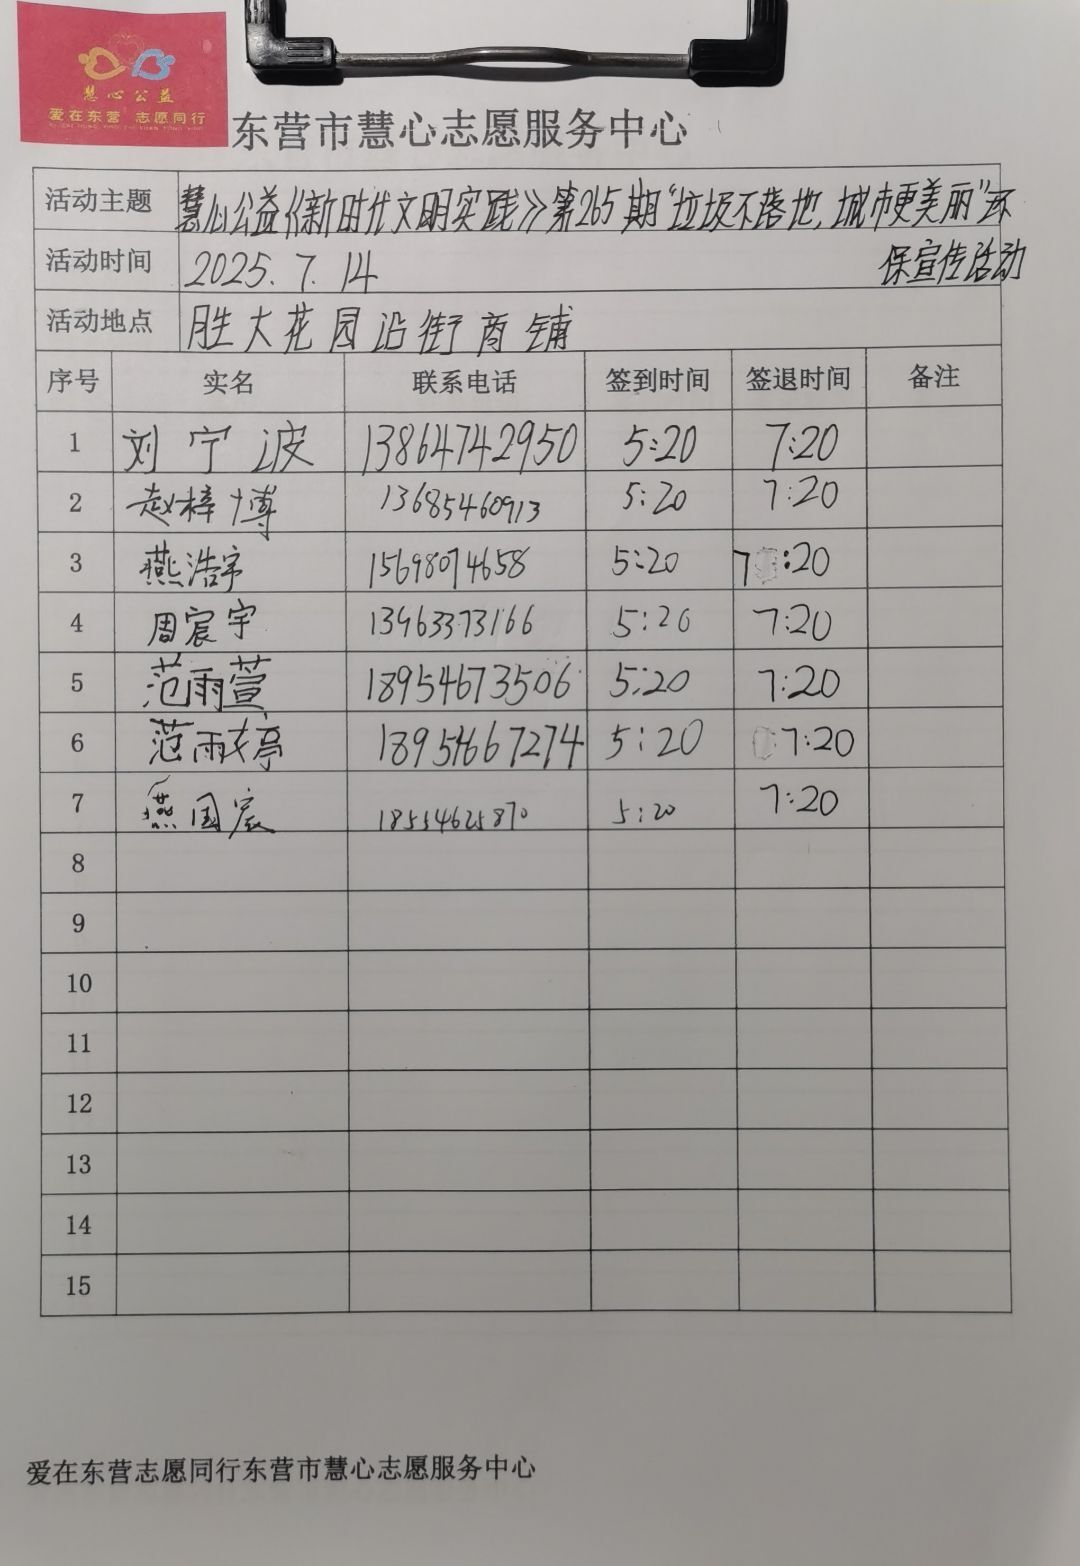 慧心公益
爱在东营 志愿同行
东营市慧心志愿服务中心
活动主题 慧心公益《新时代文明实践》第265期“垃圾不落地,城市更美丽”环
保宣传活动
活动时间 2025.7.14
活动地点 胜大花园沿街商铺
序号 实名 联系电话 签到时间 签退时间 备注
1 刘宁波 13864742950 5:20 7:20
2 赵梓博 13685460913 5:20 7:20
3 燕浩宇 15698074658 5:20 7:20
4 周宸宇 13463373166 5:20 7:20
5 范雨萱 18954673506 5:20 7:20
6 范雨婷 18954667274 5:20 7:20
7 燕国宸 18554625870 5:20 7:20
8
9
10
11
12
13
14
15
爱在东营志愿同行东营市慧心志愿服务中心